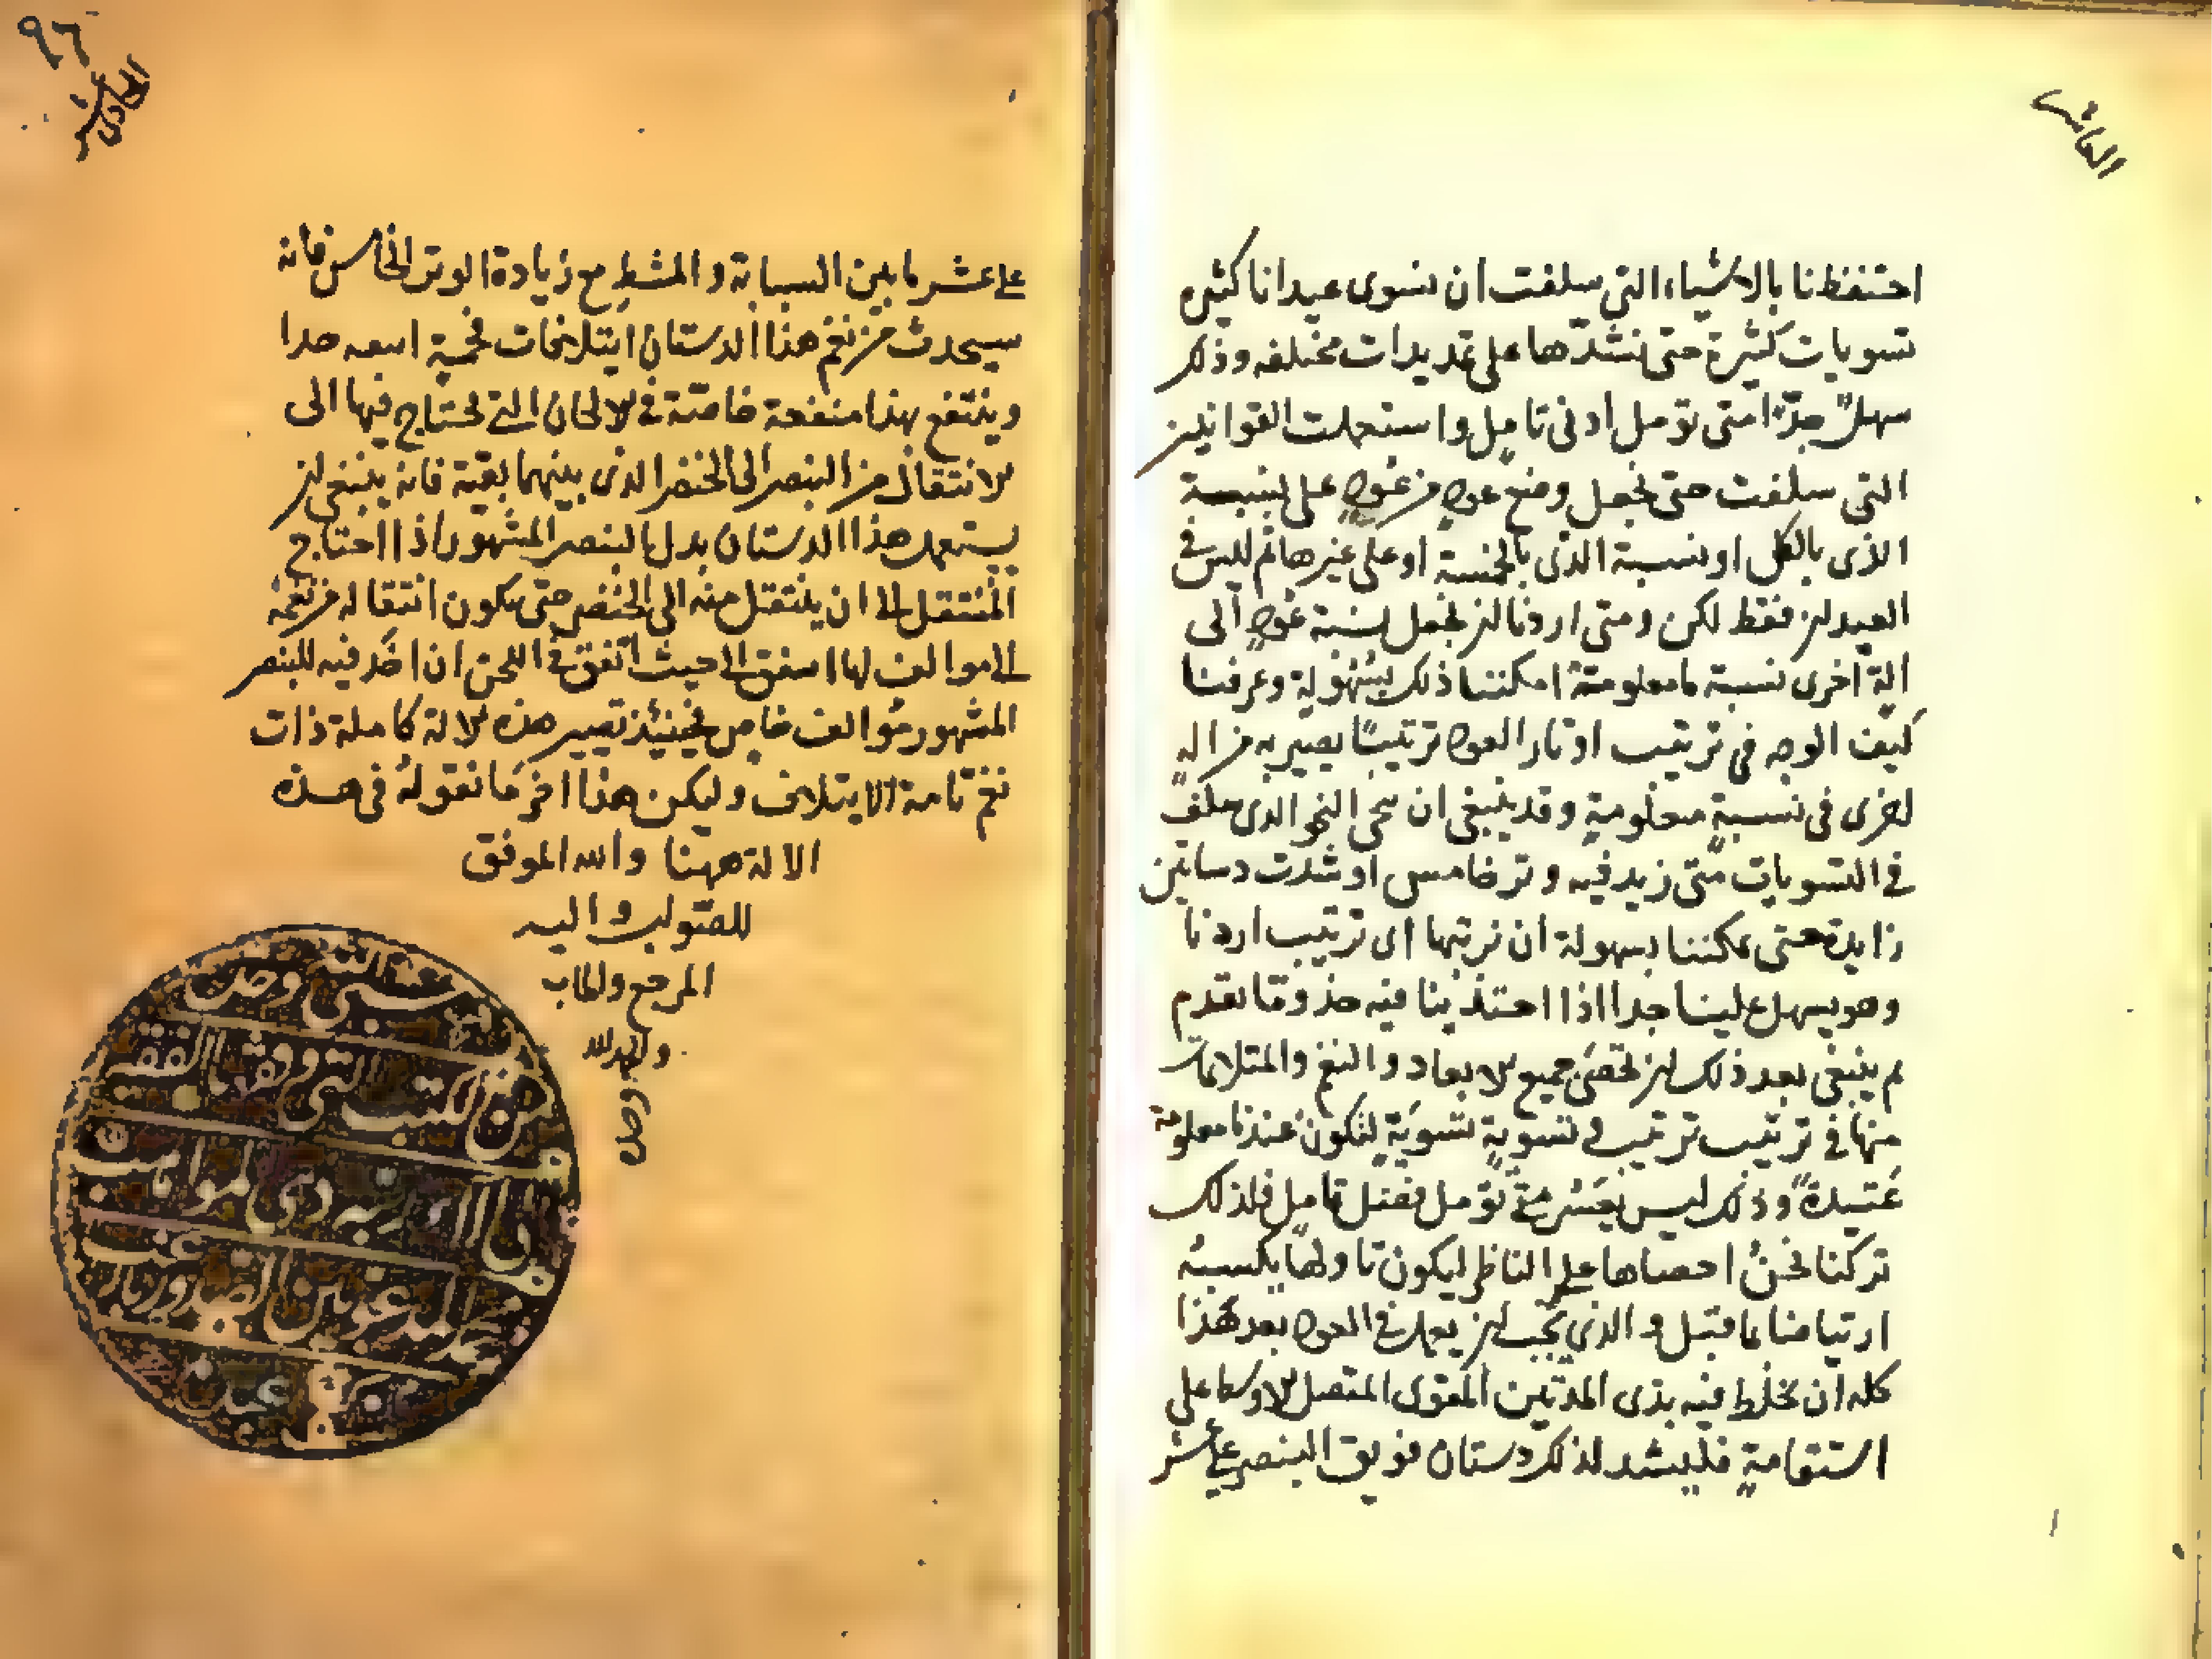 العاشر
احتفظنا بالاشياء التى سلفت ان نسوى عيدانا كثيرة
تسويات كثيرة حتى نشدّها على تمديدات مختلفه وذلك
سهلٌ جدّا متى تؤمل ادنى تامل واستعملت القوانين
التى سلفت حتى نجعل وضع عود من عودٍ على نسبة
الذى بالكل او نسبة الذى بالخمسة او على غيرها ثم ليس فى
العيدان فقط لكن ومتى اردنا ان نجعل نسبة عودٍ الى
الة اخرى نسبة ما معلومة امكننا ذلك بسهولة وعرفنا
كيف الوجه فى ترتيب اوتار العود ترتيبًا يصير به من الةٍ
اخرى فى نسبةٍ معلومةٍ وقد ينبغى ان النحو الذى سلف
فى التسويات متى زيد فيه وتر خامس او شدت دساتين
زايدة حتى يمكننا بسهولة ان نرتبها اى ترتيب اردنا
وهو يسهل علينا جدا اذا احتذينا فيه حذو ما تقدم
ثم ينبغى بعد ذلك ان نحصى جميع الابعاد والنغم والمتلائمات
منها فى ترتيب ترتيب فى تسويةٍ تسويةٍ لتكون عندنا معلومة
عَتيدةً وذلك ليس يعسر متى تؤمل بفضل تامل فلذلك
تركنا نحنُ احصاها على الناظر ليكون تاولها يكسبهُ
ارتياضا بما قبل والذى يجب ان يعمل فى العود بعد هذا
كله ان نخلط فيه بذى المدتين المقوى المتصل الاوسط على
استقامةٍ فليشد لذلك دستان فويق البنصر على عشر
٩٦
الحادى عشر
على عشر ما بين السبابة والمشط مع زيادة الوتر الخامس فانه
سيحدث من نغم هذا الدستان ايتلافات لحمية جدا
وينتفع بهذا منفعة خاصّة فى الالحان التى نحتاج فيها الى
الانتقال من البنصر الى الخنصر الذى بينهما بقيّة فانه ينبغى ان
يستعمل هذا الدستان بدل البنصر المشهور اذا احتاج
المُنتقل الى ان ينتقل منه الى الخنصر حتى يكون انتقاله من نغمة
الى موالف لها حيث اتفق فى اللحن ان اخذ فيه للبنصر
المشهور مُوالف خاص فحينئذ تصير هذه الالة كاملة ذات
نغم تامة الايتلاف وليكن هذا اخر مَا نقولهُ فى هذه
الالة ههنا والله الموفق
للصّواب واليه
المرجع والماب
والحمد لله
وحده